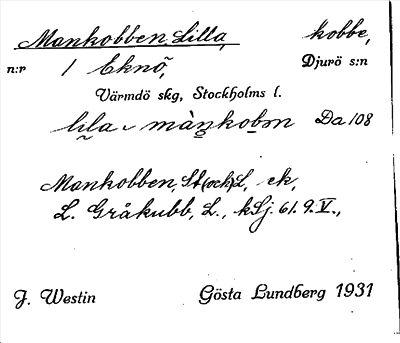 Mankobben, Lilla, kobbe,
n:r 1 Eknö, Djurö s:n
Värmdö skg, Stockholms l.
lila v mànkobm Da 108
Mankobben, St(och)L, ek,
L. Gråkubb, L., kSj. 61. 9. V.,
J. Westin Gösta Lundberg 1931